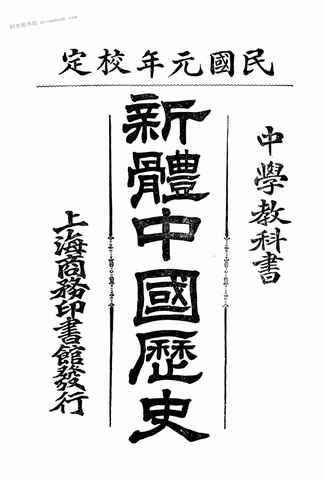 民國元年校定
中學敎科書
新體中國歷史
上海商務印書館發行